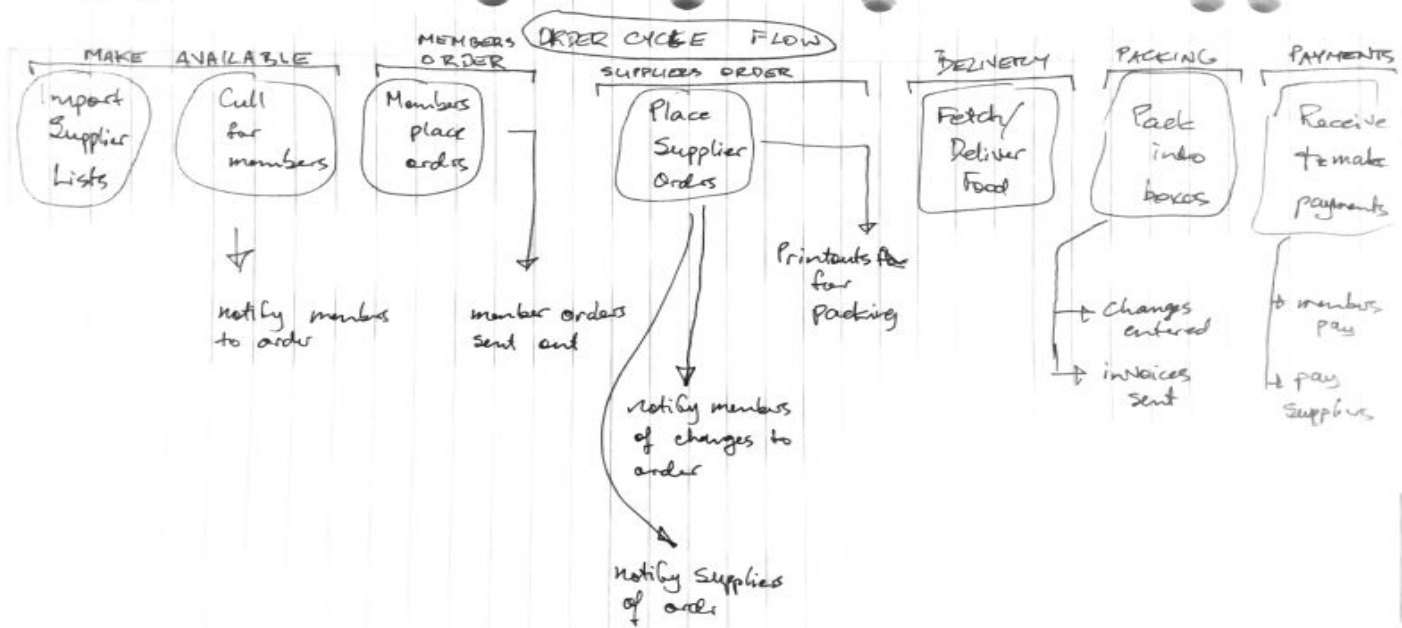 ORDER CYCLE FLOW
MAKE AVAILABLE
Import
Supplier
Lists
Cull
for
members
notify members
to order
MEMBERS
ORDER
Members
place
orders
member orders
sent out
SUPPLIERS ORDER
Place
Supplier
Orders
Printouts
for
packing
notify members
of changes to
order
notify Suppliers
of order
DELIVERY
Fetch/
Deliver
Food
PACKING
Pack
into
boxes
Changes
entered
invoices
sent
PAYMENTS
Receive
+ make
payments
members
pay
pay
Suppliers